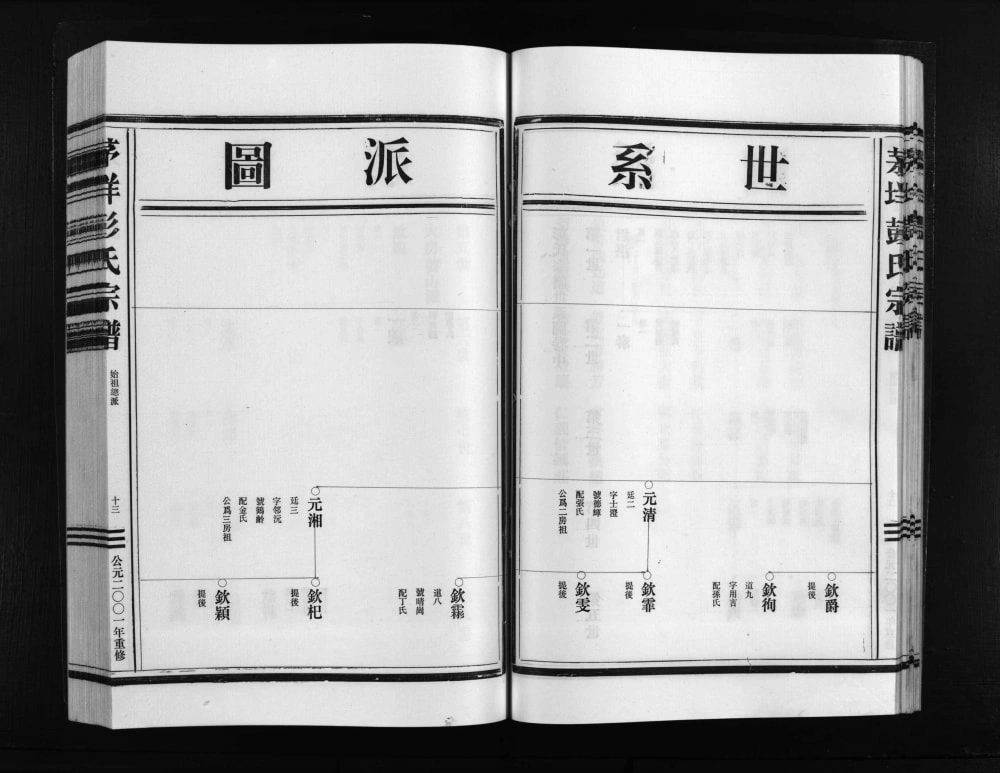 世系
派圖
元清
廷二
字士澄
號德輝
配張氏
公爲二房祖
欽爵
提後
欽徇
道九
字用言
配孫氏
欽霏
提後
欽雯
提後
元湘
廷三
字邻沅
號鶴齡
配金氏
公爲三房祖
欽霖
道八
號晴崗
配丁氏
欽杞
提後
欽穎
提後
彭氏宗譜
始祖總派
十三
公元二〇〇一年重修
彭氏宗譜